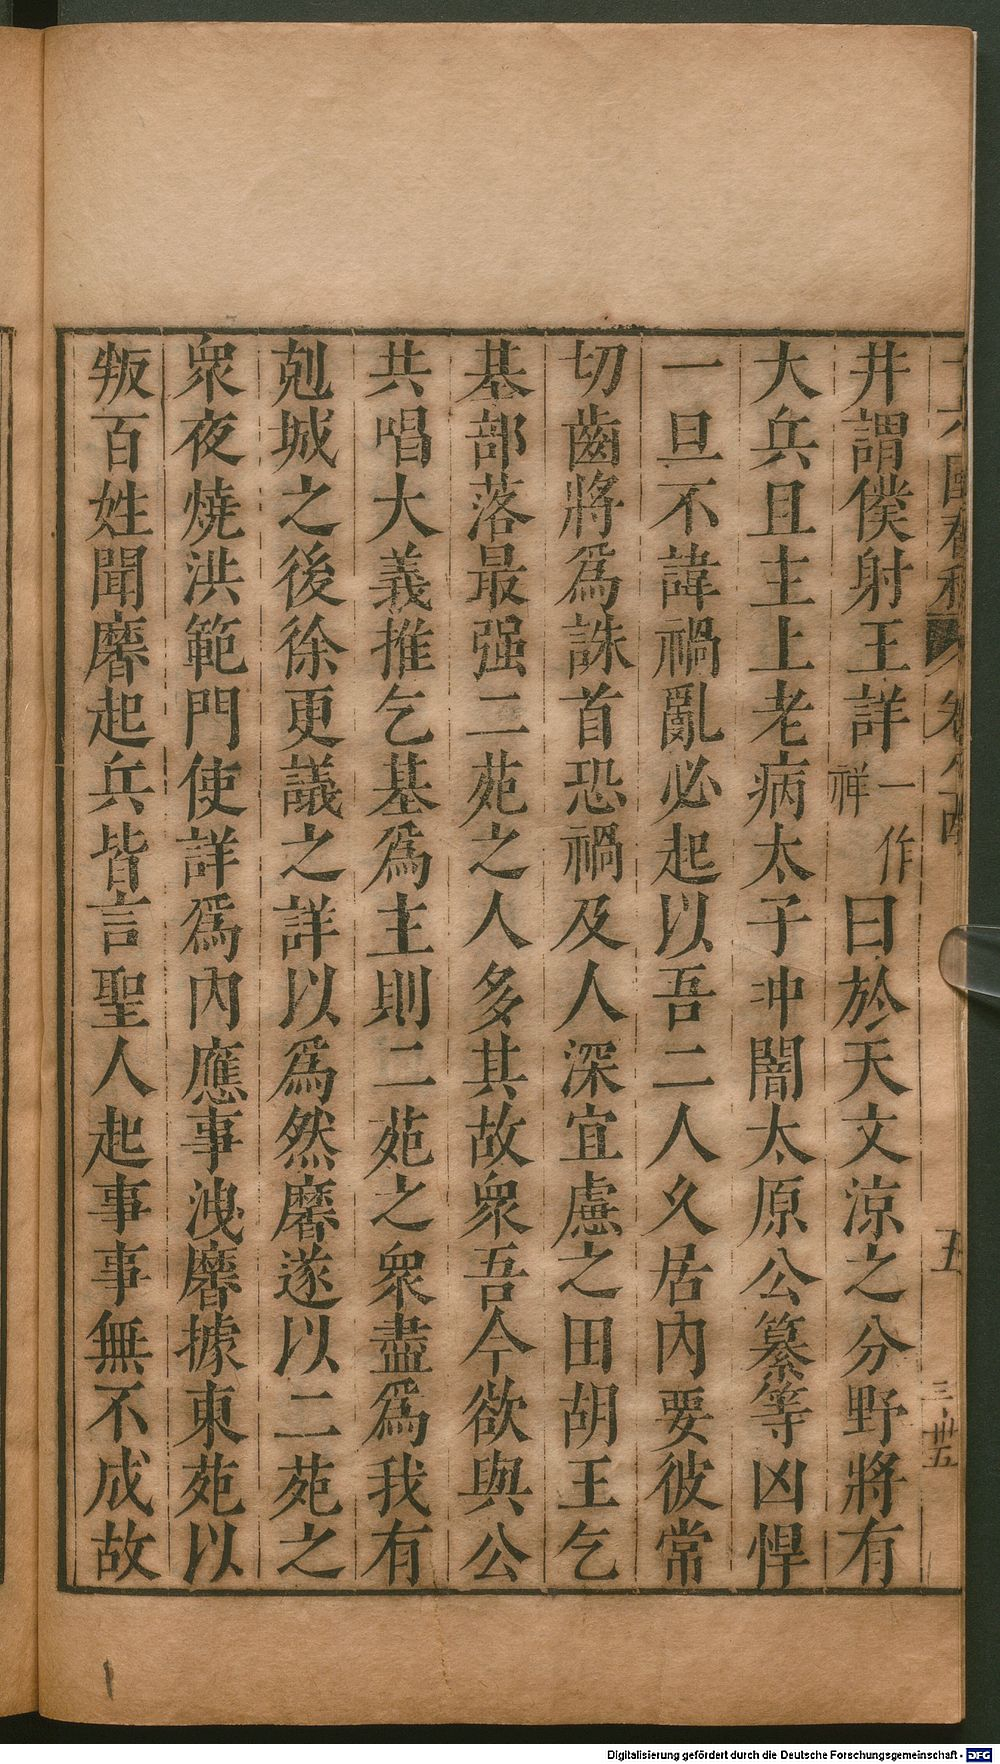 井謂僕射王詳一作祥曰於天文涼之分野將有
大兵且主上老病太子冲闇太原公纂等凶悍
一旦不諱禍亂必起以吾二人久居內要彼常
切齒將爲誅首恐禍及人深宜慮之田胡王乞
基部落最强二苑之人多其故衆吾今欲與公
共唱大義推乞基爲主則二苑之衆盡爲我有
剋城之後徐更議之詳以爲然黁遂以二苑之
衆夜燒洪範門使詳爲內應事洩黁據東苑以
叛百姓聞黁起兵皆言聖人起事事無不成故
Digitalisierung gefördert durch die Deutsche Forschungsgemeinschaft - DFG